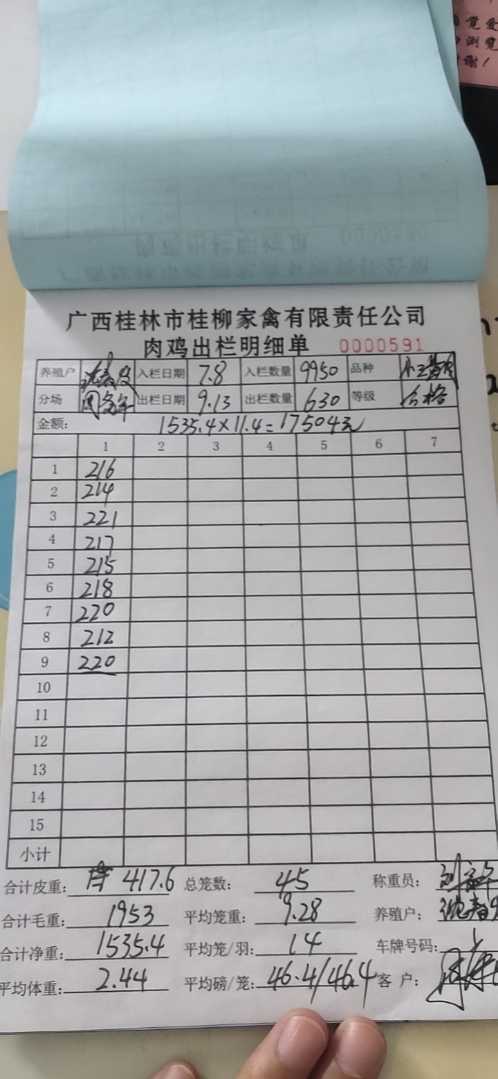 广西桂林市桂柳家禽有限责任公司
肉鸡出栏明细单 0000591
养殖户 入栏日期 7.8 入栏数量 9950 品种
分场 出栏日期 9.13 出栏数量 630 等级 合格
金额: 1535.4×11.4=17504元
1 2 3 4 5 6 7
1 216
2 214
3 221
4 217
5 215
6 218
7 220
8 212
9 220
10
11
12
13
14
15
小计
合计皮重: 417.6 总笼数: 45 称重员:
合计毛重: 1953 平均笼重: 9.28 养殖户:
合计净重: 1535.4 平均笼/羽: 14 车牌号码:
平均体重: 2.44 平均磅/笼: 46.4/46.4 客户: